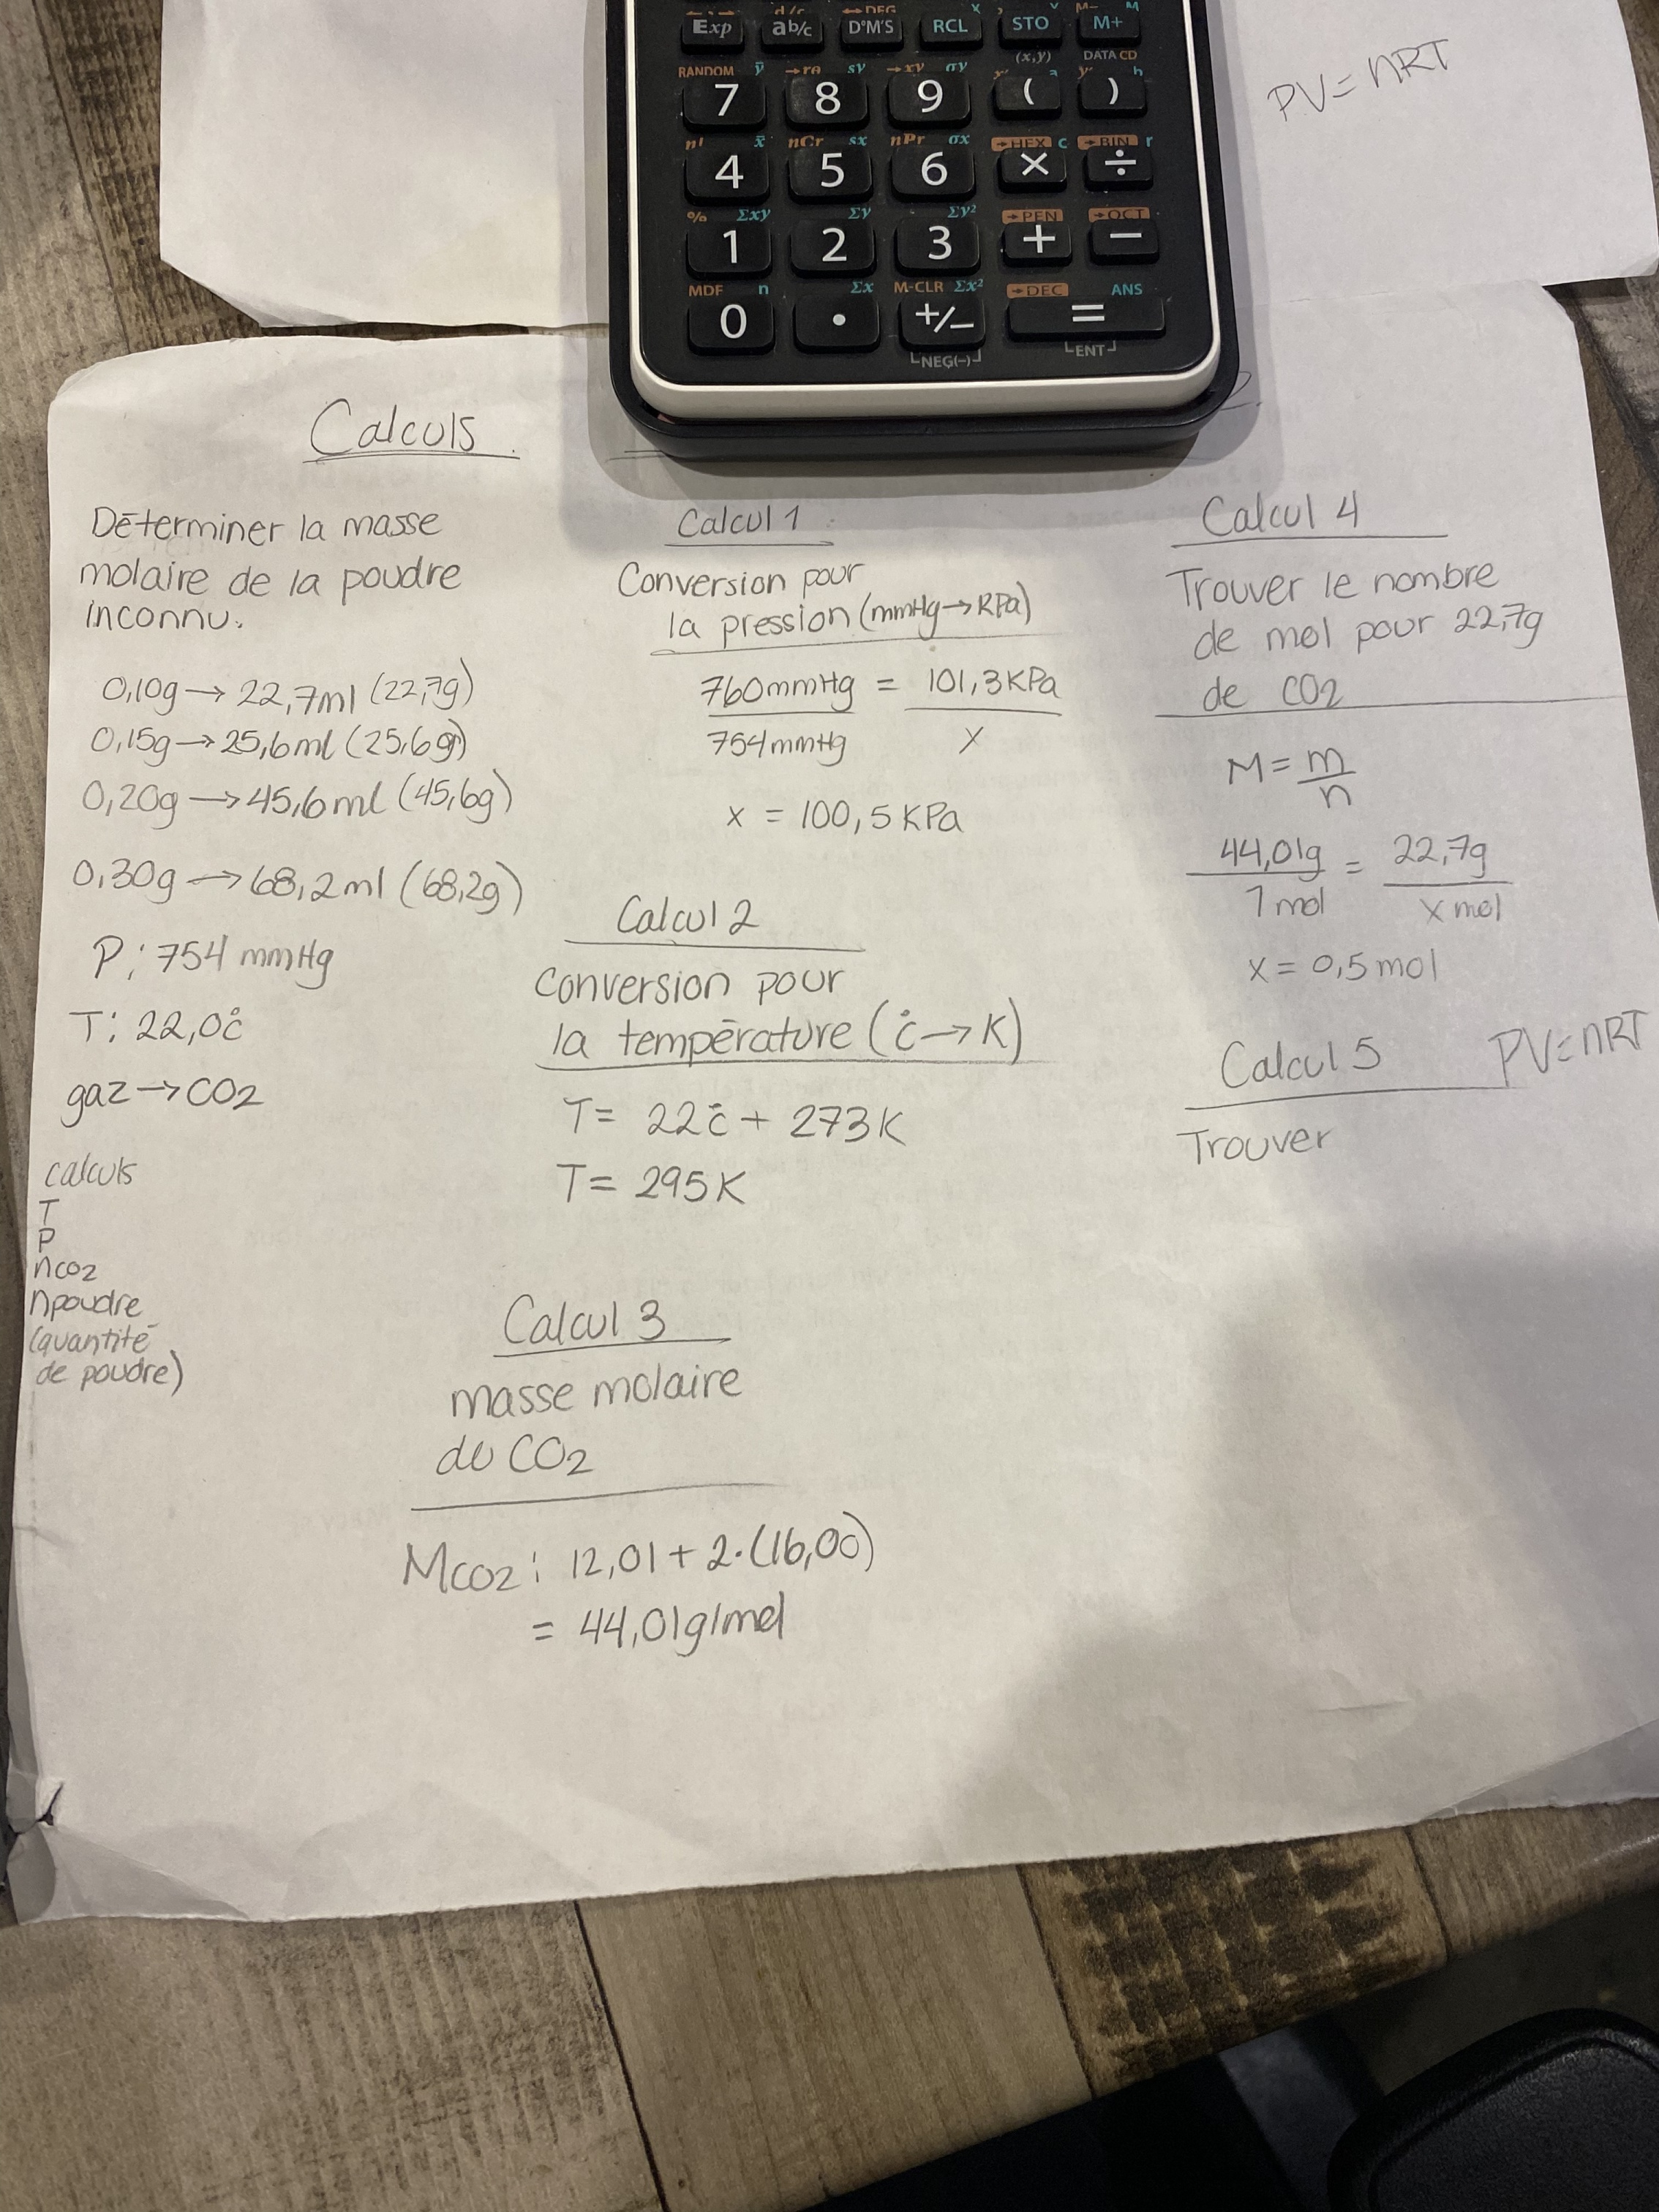 Exp ab/c D°M'S RCL STO M+
(x,y) DATA CD
RANDOM
7 8 9 ( )
n! x̄ nCr sx nPr σx →HEX c →BIN r
4 5 6 × ÷
% Σxy Σy Σy² →PEN →OCT
1 2 3 + −
MDF n Σx M-CLR Σx² →DEC ANS
0 • +/− =
NEG(−) ENT
PV = nRT
Calculs
Déterminer la masse
molaire de la poudre
inconnu:
0,10g → 22,7ml (22,7g)
0,15g → 25,6ml (25,6g)
0,20g → 45,6ml (45,6g)
0,30g → 68,2ml (68,2g)
P: 754 mmHg
T: 22,0°c
gaz → CO2
calculs
T
P
nco2
npoudre
(quantité
de poudre)
Calcul 1
Conversion pour
la pression (mmHg → KPa)
760mmHg = 101,3KPa
754mmHg x
x = 100,5 KPa
Calcul 2
Conversion pour
la température (°c → K)
T = 22°c + 273K
T = 295K
Calcul 3
masse molaire
du CO2
Mco2: 12,01 + 2·(16,00)
= 44,01g/mol
Calcul 4
Trouver le nombre
de mol pour 22,7g
de CO2
M = m
n
44,01g = 22,7g
1 mol x mol
x = 0,5 mol
Calcul 5 PV = nRT
Trouver